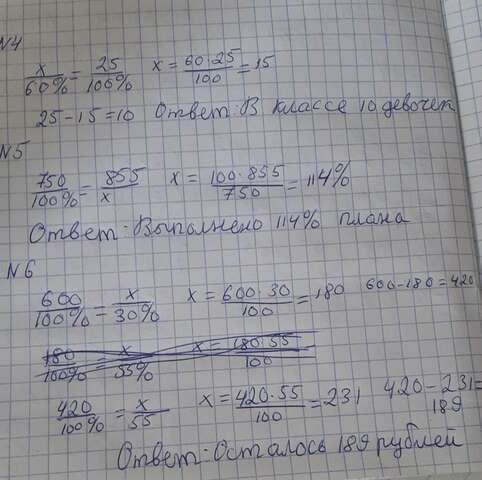 N4
x/60% = 25/100% x = 60·25/100 = 15
25-15=10 Ответ: В классе 10 девочек
N5
750/100% = 855/x x = 100·855/750 = 114%
Ответ: Выполнено 114% плана
N6
600/100% = x/30% x = 600·30/100 = 180 600-180=420
180/100% = x/55% x = 180·55/100
420/100% = x/55 x = 420·55/100 = 231 420-231=
189
Ответ: Осталось 189 рублей